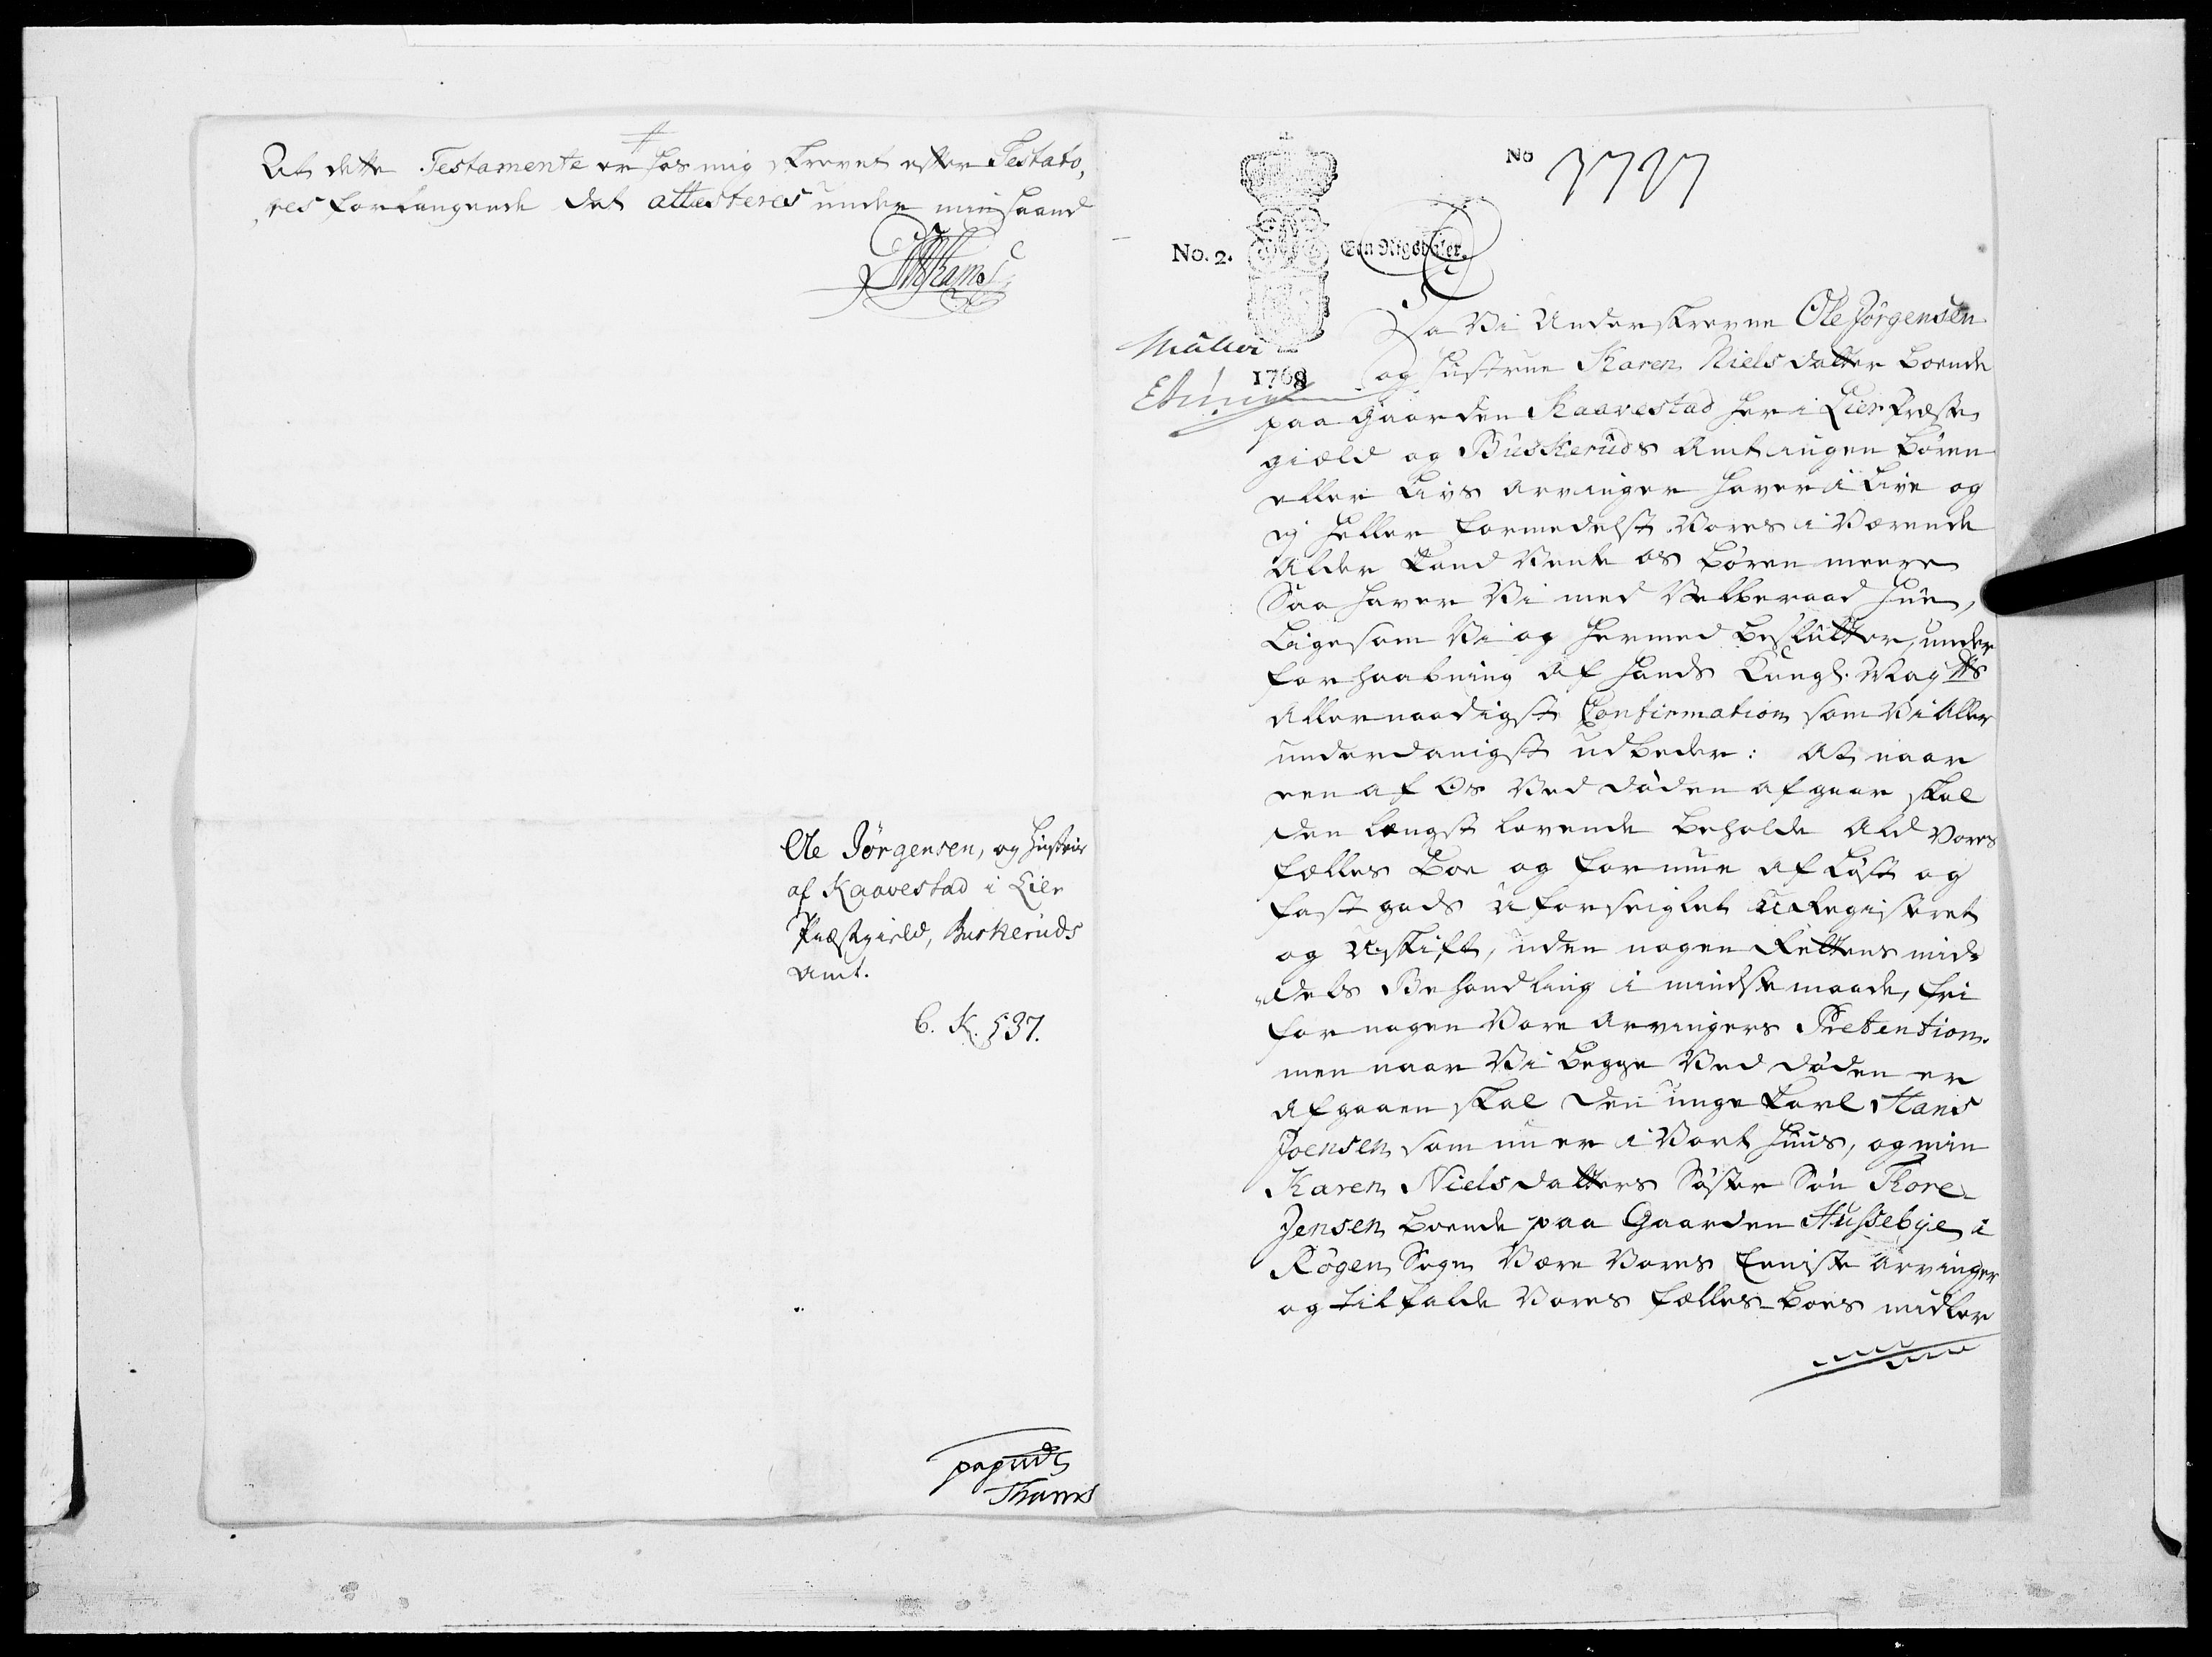 At dette Testamente er hos mig skrevet efter Testato,
res forlangende det attesteres under min haand
Thams
Ole Jörgensen, og Hustrue
af Kaavestad i Lier
Præstgield, Buskeruds
Amt.
C. K. 537.
Thams
No
No. 2. Een Rigsdaler.
Müller
1768
Da Vi Underskrevne Ole Jörgensen
og hustrue Karen Nielsdatter boende
paa Gaarden Kaavestad her i Lier Præste
gield og Buskeruds Amt ingen börn
eller Livs arvinger haver i Live og
ej heller formedelst Vores i Værende
Alder kand Vente os börn meere
Saa haver Vi med Velberaad hue,
Ligesom Vi og hermed beslutter, under
forhaabning af hands Kongl. May:tts
Allernaadigste Confirmation som Vi Aller
underdanigst udbeder: At naar
een af Os Ved döden afgaar skal
den længst levende beholde Ald Vores
fælles Boe og formue af Löst og
fast gods Uforseiglet U-Registeret
og Uskift, uden nogen Rettens mid-
dels Behandling i mindste maade, fri
for nogen Vore Arvingers Pretention.
men naar Vi begge Ved döden er
afgaaen skal den unge karl Hans
Joensen som nu er i Vort huus, og min
Karen Nielsdatters Söster Sön Thore
Jensen boende paa Gaarden Hussebye i
Rögen Sogn Være Vores Eeniste Arvinger
og tilfalde Vores fælles-boes midler